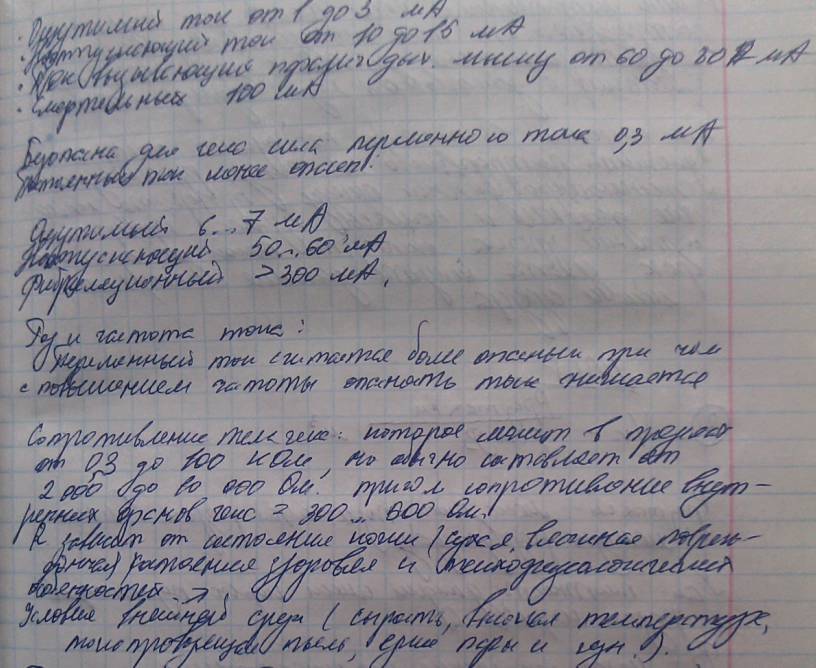 · Ощутимый ток от 1 до 3 мА
· Неотпускающий ток от 10 до 15 мА
· Ток вызывающий паралич дых. мышц от 60 до 80 мА
· Смертельный 100 мА
Безопасна для чело сила переменного тока 0,3 мА
Постоянный ток менее опасен.
Ощутимый 6...7 мА
Неотпускающий 50...60 мА
Фибрелляционный >300 мА.
Род и частота тока:
Переменный ток считается более опасным при чем
с повышением частоты опасность тока снижается
Сопротивление тела чело: которое может в пределах
от 0,3 до 100 кОм, но обычно составляет от
2 000 до 000 Ом. причем сопротивление внут-
ренних органов чело = 300... 000 Ом.
R зависит от состояние кожи (сухая, влажная повреж-
дённая) состояния здоровья и психофизиологический
особенностей
Условия внешней среды (сырость, высокая температура,
токопроводящая пыль, едкие пары и др.).